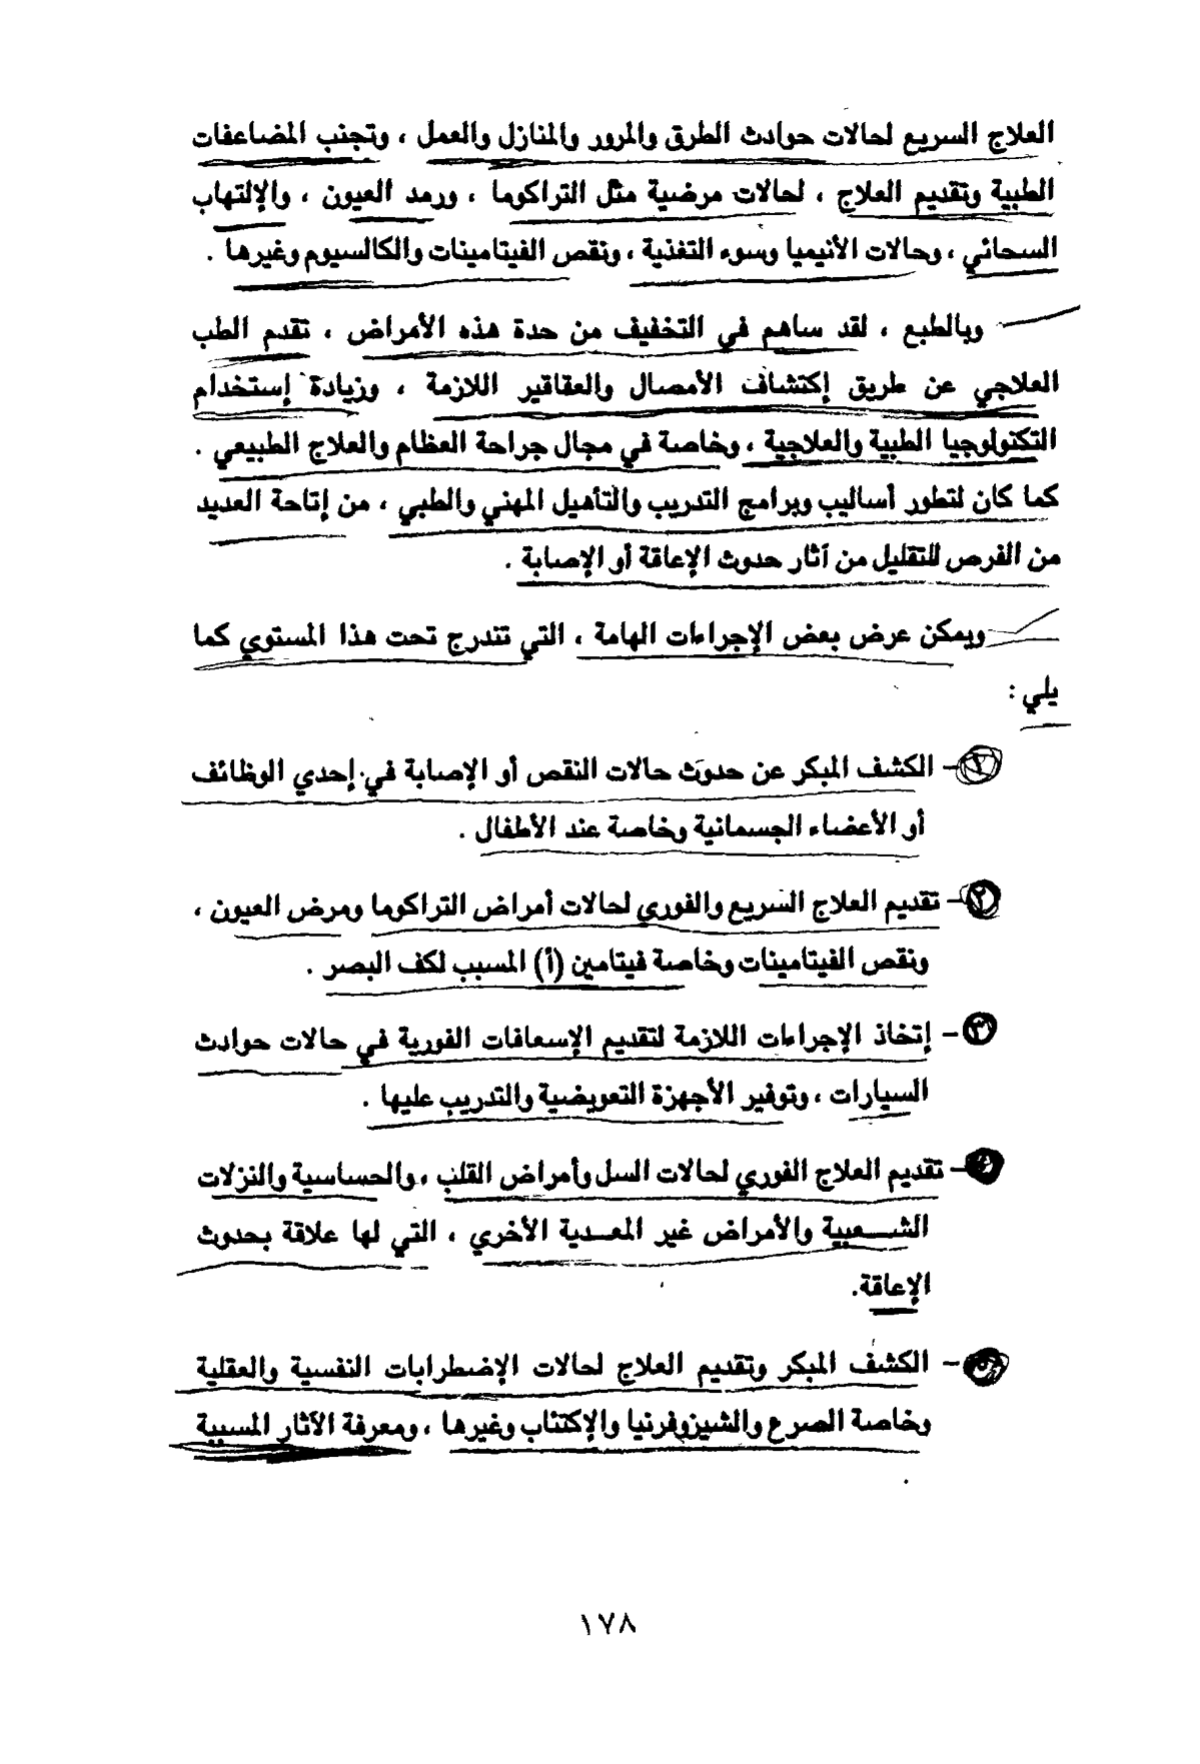 العلاج السريع لحالات حوادث الطرق والمرور والمنازل والعمل ، وتجنب المضاعفات
الطبية وتقديم العلاج ، لحالات مرضية مثل التراكوما ، ورمد العيون ، والإلتهاب
السحائي ، وحالات الأنيميا وسوء التغذية ، ونقص الفيتامينات والكالسيوم وغيرها .
وبالطبع ، لقد ساهم في التخفيف من حدة هذه الأمراض ، تقدم الطب
العلاجي عن طريق إكتشاف الأمصال والعقاقير اللازمة ، وزيادة إستخدام
التكنولوجيا الطبية والعلاجية ، وخاصة في مجال جراحة العظام والعلاج الطبيعي .
كما كان لتطور أساليب وبرامج التدريب والتأهيل المهني والطبي ، من إتاحة العديد
من الفرص للتقليل من آثار حدوث الإعاقة أو الإصابة .
ويمكن عرض بعض الإجراءات الهامة ، التي تندرج تحت هذا المستوي كما
يلي :
- الكشف المبكر عن حدوث حالات النقص أو الإصابة في إحدي الوظائف
أو الأعضاء الجسمانية وخاصة عند الأطفال .
٢- تقديم العلاج السريع والفوري لحالات أمراض التراكوما ومرض العيون ،
ونقص الفيتامينات وخاصة فيتامين (أ) المسبب لكف البصر .
٣- إتخاذ الإجراءات اللازمة لتقديم الإسعافات الفورية في حالات حوادث
السيارات ، وتوفير الأجهزة التعويضية والتدريب عليها .
٤- تقديم العلاج الفوري لحالات السل وأمراض القلب ، والحساسية والنزلات
الشعبية والأمراض غير المعدية الأخري ، التي لها علاقة بحدوث
الإعاقة.
٥- الكشف المبكر وتقديم العلاج لحالات الإضطرابات النفسية والعقلية
وخاصة الصرع والشيزوفرنيا والإكتئاب وغيرها ، ومعرفة الآثار المسببة
١٧٨